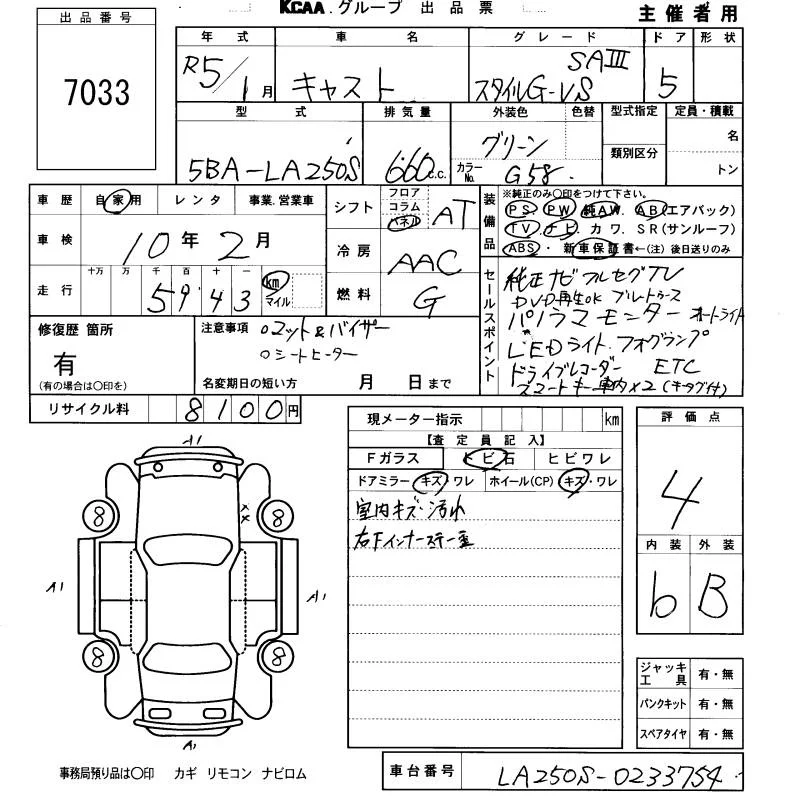 KCAA.グループ 出品票
主催者用
出品番号
7033
年式 車名 グレード ドア 形状
R5/1月 キャスト スタイルG-VS SAIII 5
型式 排気量 外装色 色替 型式指定 定員・積載
5BA-LA250S 660 c.c. グリーン
カラーNo. G58
類別区分
名
トン
車歴 自家用 レンタ 事業.営業車
車検 10年2月
走行 十万 万 千 百 十 一
59 43 km マイル
シフト フロア コラム パネル AT
冷房 AAC
燃料 G
装備品
※純正のみ〇印をつけて下さい。
PS. PW. 純AW. AB(エアバック)
TV. ナビ. カワ. SR(サンルーフ)
ABS・新車保証書←(注)後日送りのみ
セールスポイント
純正ナビ フルセグTV
DVD再生OK ブルートゥース
パノラマモニター オートライト
LEDライト.フォグランプ
ドライブレコーダー ETC
スマートキー車内×2(キータグ付)
修復歴 箇所
有
(有の場合は〇印を)
注意事項 ○マット&バイザー
○シートヒーター
名変期日の短い方 月 日まで
リサイクル料 8100円
現メーター指示 km
【査定員記入】
Fガラス トビ石 ヒビワレ
ドアミラー キズ・ワレ ホイール(CP) キズ・ワレ
室内キズ・汚れ
右Fインナーステー歪
評価点
4
内装 外装
b B
A1
8 × × 8
A1 A1
8 8
A1
ジャッキ工具 有・無
パンクキット 有・無
スペアタイヤ 有・無
事務局預り品は〇印 カギ リモコン ナビロム
車台番号 LA250S-0233754